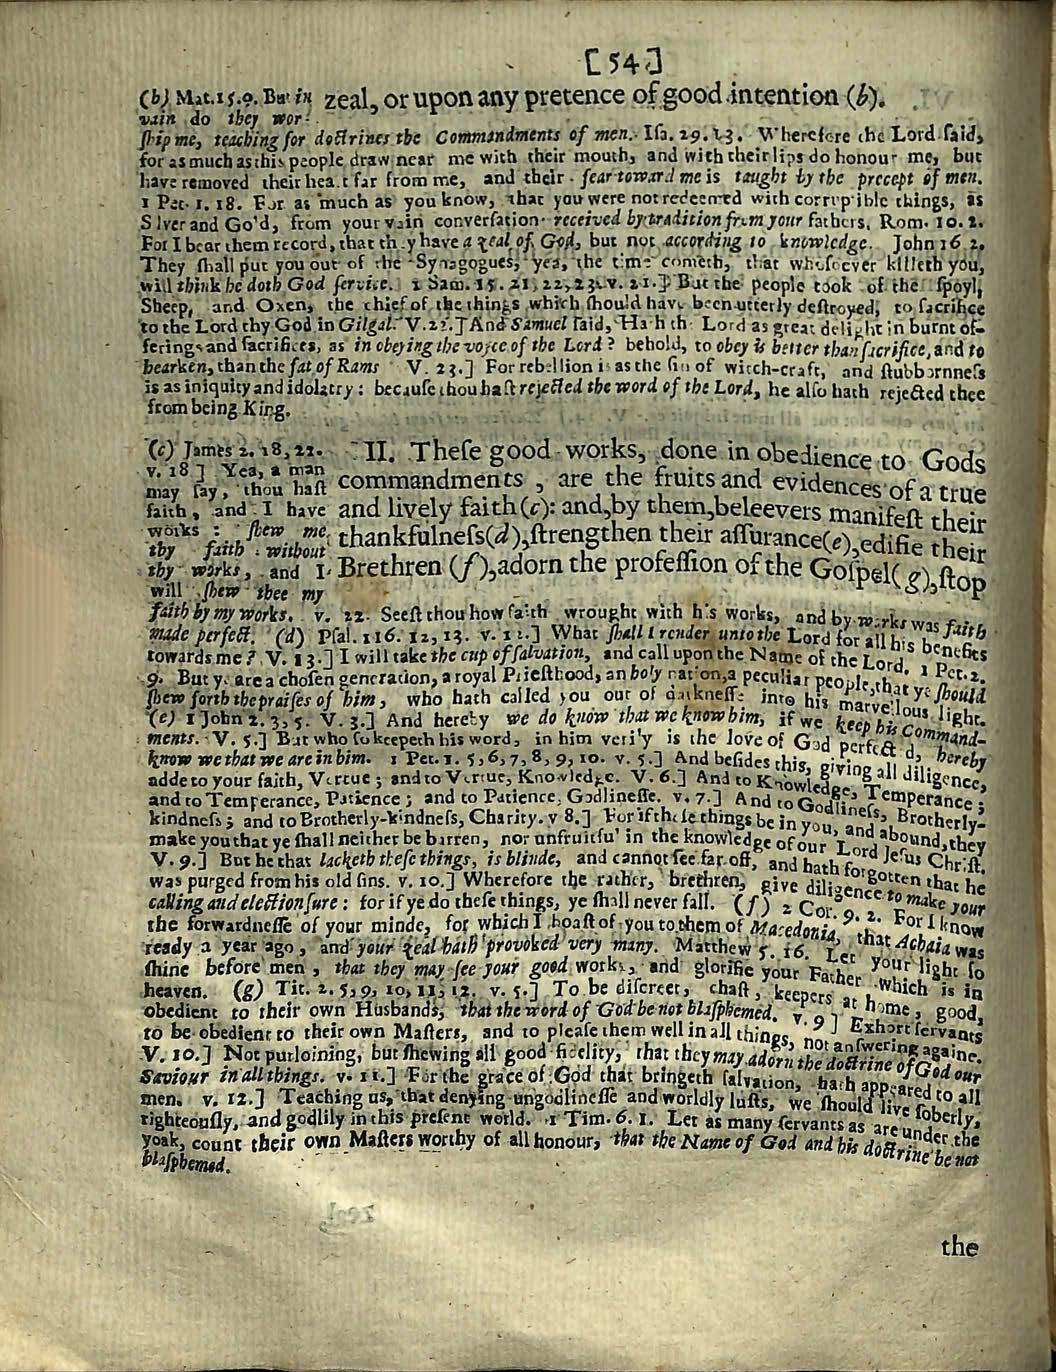 [54]
(b) Mat.15.9. But in zeal, or upon any pretence of good intention (b).
vain do they wor-
ſhip me, teaching for doctrines the Commandments of men. Iſa. 29.13. Wherefore the Lord ſaid,
for as much as this people draw near me with their mouth, and with their lips do honour me, but
have removed their heart far from me, and their fear toward me is taught by the precept of men.
1 Pet. 1. 18. For as much as you know, that you were not redeemed with corruptible things, as
Silver and Gold, from your vain converſation received by tradition from your fathers. Rom. 10. 2.
For I bear them record, that they have a zeal of God, but not according to knowledge. John 16. 2.
They ſhall put you out of the Synagogues, yea, the time cometh, that whoſoever killeth you,
will think he doth God ſervice. 1 Sam. 15. 21, 22, 23. v. 21.] But the people took of the ſpoyl,
Sheep, and Oxen, the chief of the things which ſhould have been utterly deſtroyed, to ſacrifice
to the Lord thy God in Gilgal. V. 22.] And Samuel ſaid, Hath the Lord as great delight in burnt of-
ferings and ſacrifices, as in obeying the voyce of the Lord? behold, to obey is better than ſacrifice, and to
hearken, than the fat of Rams V. 23.] For rebellion is as the ſin of witch-craft, and ſtubbornneſs
is as iniquity and idolatry: becauſe thou haſt rejected the word of the Lord, he alſo hath rejected thee
from being King.
II. Theſe good works, done in obedience to Gods
commandments, are the fruits and evidences of a true
and lively faith (c): and, by them, beleevers manifeſt their
thankfulneſs (d), ſtrengthen their aſſurance (e), edifie their
Brethren (f), adorn the profeſſion of the Goſpel (g), ſtop
(c) James 2. 18, 22.
v. 18] Yea, a man
may ſay, thou haſt
faith, and I have
works: ſhew me
thy faith without
thy works, and I
will ſhew thee my
faith by my works. v. 22. Seeſt thou how faith wrought with his works, and by works was faith
made perfect. (d) Pſal. 116. 12, 13. v. 12.] What ſhall I render unto the Lord for all his benefits
towards me? V. 13.] I will take the cup of ſalvation, and call upon the Name of the Lord. 1 Pet. 2.
9. But ye are a choſen generation, a royal Prieſthood, an holy nation, a peculiar people, that ye ſhould
ſhew forth the praiſes of him, who hath called you out of darkneſſe into his marvellous light.
(e) 1 John 2. 3, 5. V. 3.] And hereby we do know that we know him, if we keep his Command-
ments. V. 5.] But who ſo keepeth his word, in him verily is the love of God perfected, hereby
know we that we are in him. 1 Pet. 1. 5, 6, 7, 8, 9, 10. v. 5.] And beſides this, giving all diligence,
adde to your faith, Vertue; and to Vertue, Knowledge. V. 6.] And to Knowledge, Temperance;
and to Temperance, Patience; and to Patience, Godlineſſe. v. 7.] And to Godlineſs, Brotherly-
kindneſs; and to Brotherly-kindneſs, Charity. v 8.] For if theſe things be in you, and abound, they
make you that ye ſhall neither be barren, nor unfruitful in the knowledge of our Lord Jeſus Chriſt.
V. 9.] But he that lacketh theſe things, is blinde, and cannot ſee far off, and hath forgotten that he
was purged from his old ſins. v. 10.] Wherefore the rather, brethren, give diligence to make your
calling and election ſure: for if ye do theſe things, ye ſhall never fall. (f) 2 Cor. 9. 2. For I know
the forwardneſſe of your minde, for which I boaſt of you to them of Macedonia, that Achaia was
ready a year ago, and your zeal hath provoked very many. Matthew 5. 16. Let your light ſo
ſhine before men, that they may ſee your good works, and glorifie your Father which is in
heaven. (g) Tit. 2. 5, 9, 10, 11, 12. v. 5.] To be diſcreet, chaſt, keepers at home, good,
obedient to their own Husbands, that the word of God be not blaſphemed. v. 9] Exhort ſervants
to be obedient to their own Maſters, and to pleaſe them well in all things, not anſwering againe.
V. 10.] Not purloining, but ſhewing all good fidelity, that they may adorn the doctrine of God our
Saviour in all things. v. 11.] For the grace of God that bringeth ſalvation, hath appeared to all
men. v. 12.] Teaching us, that denying ungodlineſſe and worldly luſts, we ſhould live ſoberly,
righteouſly, and godlily in this preſent world. 1 Tim. 6. 1. Let as many ſervants as are under the
yoak, count their own Maſters worthy of all honour, that the Name of God and his doctrine be not
blaſphemed.
the